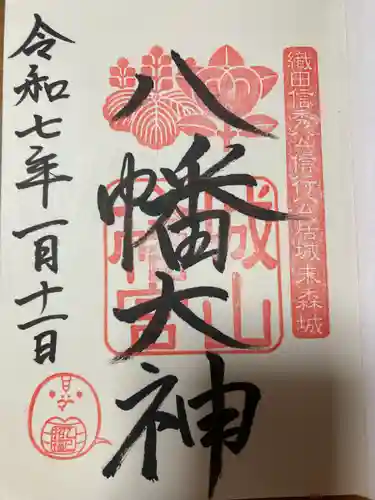 織田信秀公信行公居城末森城
八幡大神
城山
令和七年一月十一日